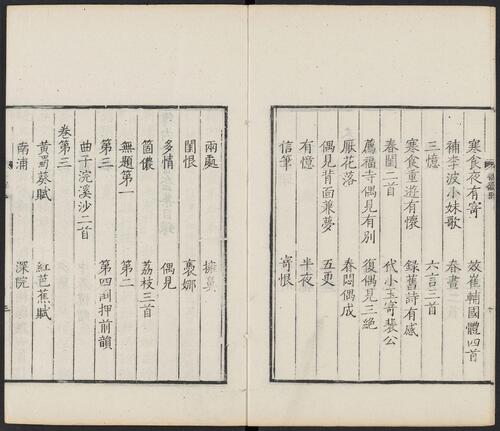 寒食夜有寄 效崔輔國體四首
補李波小妹歌 春晝
三憶 六言三首
寒食重遊有懷 錄舊詩有感
春閨二首 代小玉寄裴公
薦福寺偶見有別 復偶見三絶
厭花落 春悶偶成
偶見背面兼夢 五更
有憶 半夜
信筆 寄恨
兩處 擁鼻
閨恨 褭娜
多情 偶見
箇儂 荔枝三首
無題第一 第二
第三 第四囘押前韻
曲子浣溪沙二首
卷第三
黄蜀葵賦 紅芭蕉賦
南浦 深院